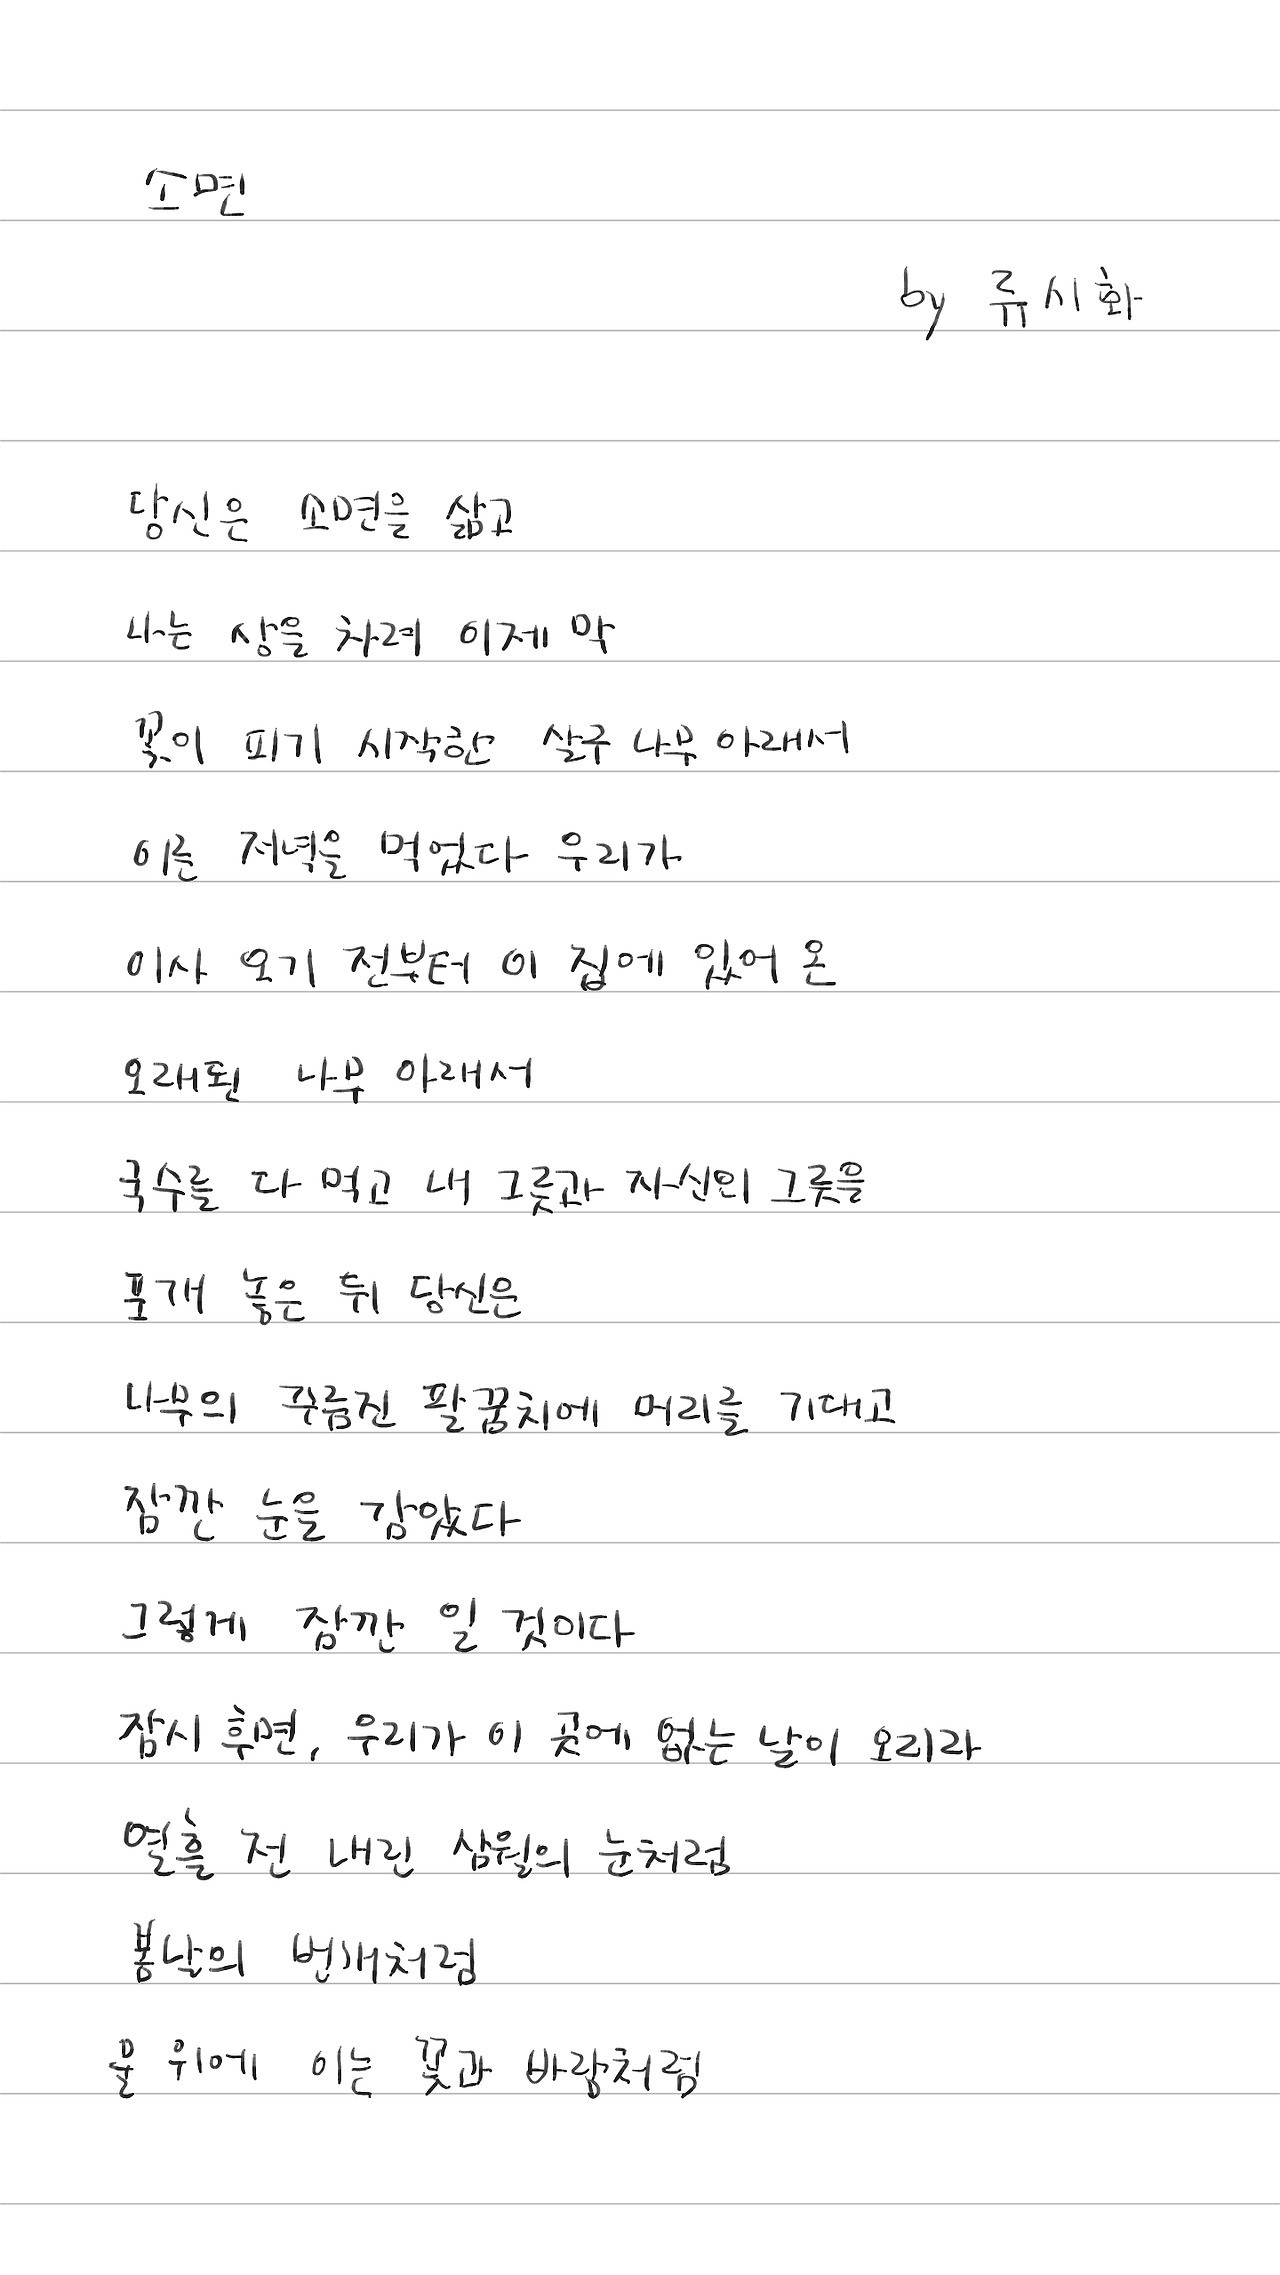 소면
by 류시화
당신은 소면을 삶고
나는 상을 차려 이제 막
꽃이 피기 시작한 살구 나무 아래서
이른 저녁을 먹었다 우리가
이사 오기 전부터 이 집에 있어 온
오래된 나무 아래서
국수를 다 먹고 내 그릇과 자신의 그릇을
포개 놓은 뒤 당신은
나무의 주름진 팔꿈치에 머리를 기대고
잠깐 눈을 감았다
그렇게 잠깐 일 것이다
잠시 후면, 우리가 이 곳에 없는 날이 오리라
열흘 전 내린 삼월의 눈처럼
봄날의 번개처럼
물 위에 이는 꽃과 바람처럼